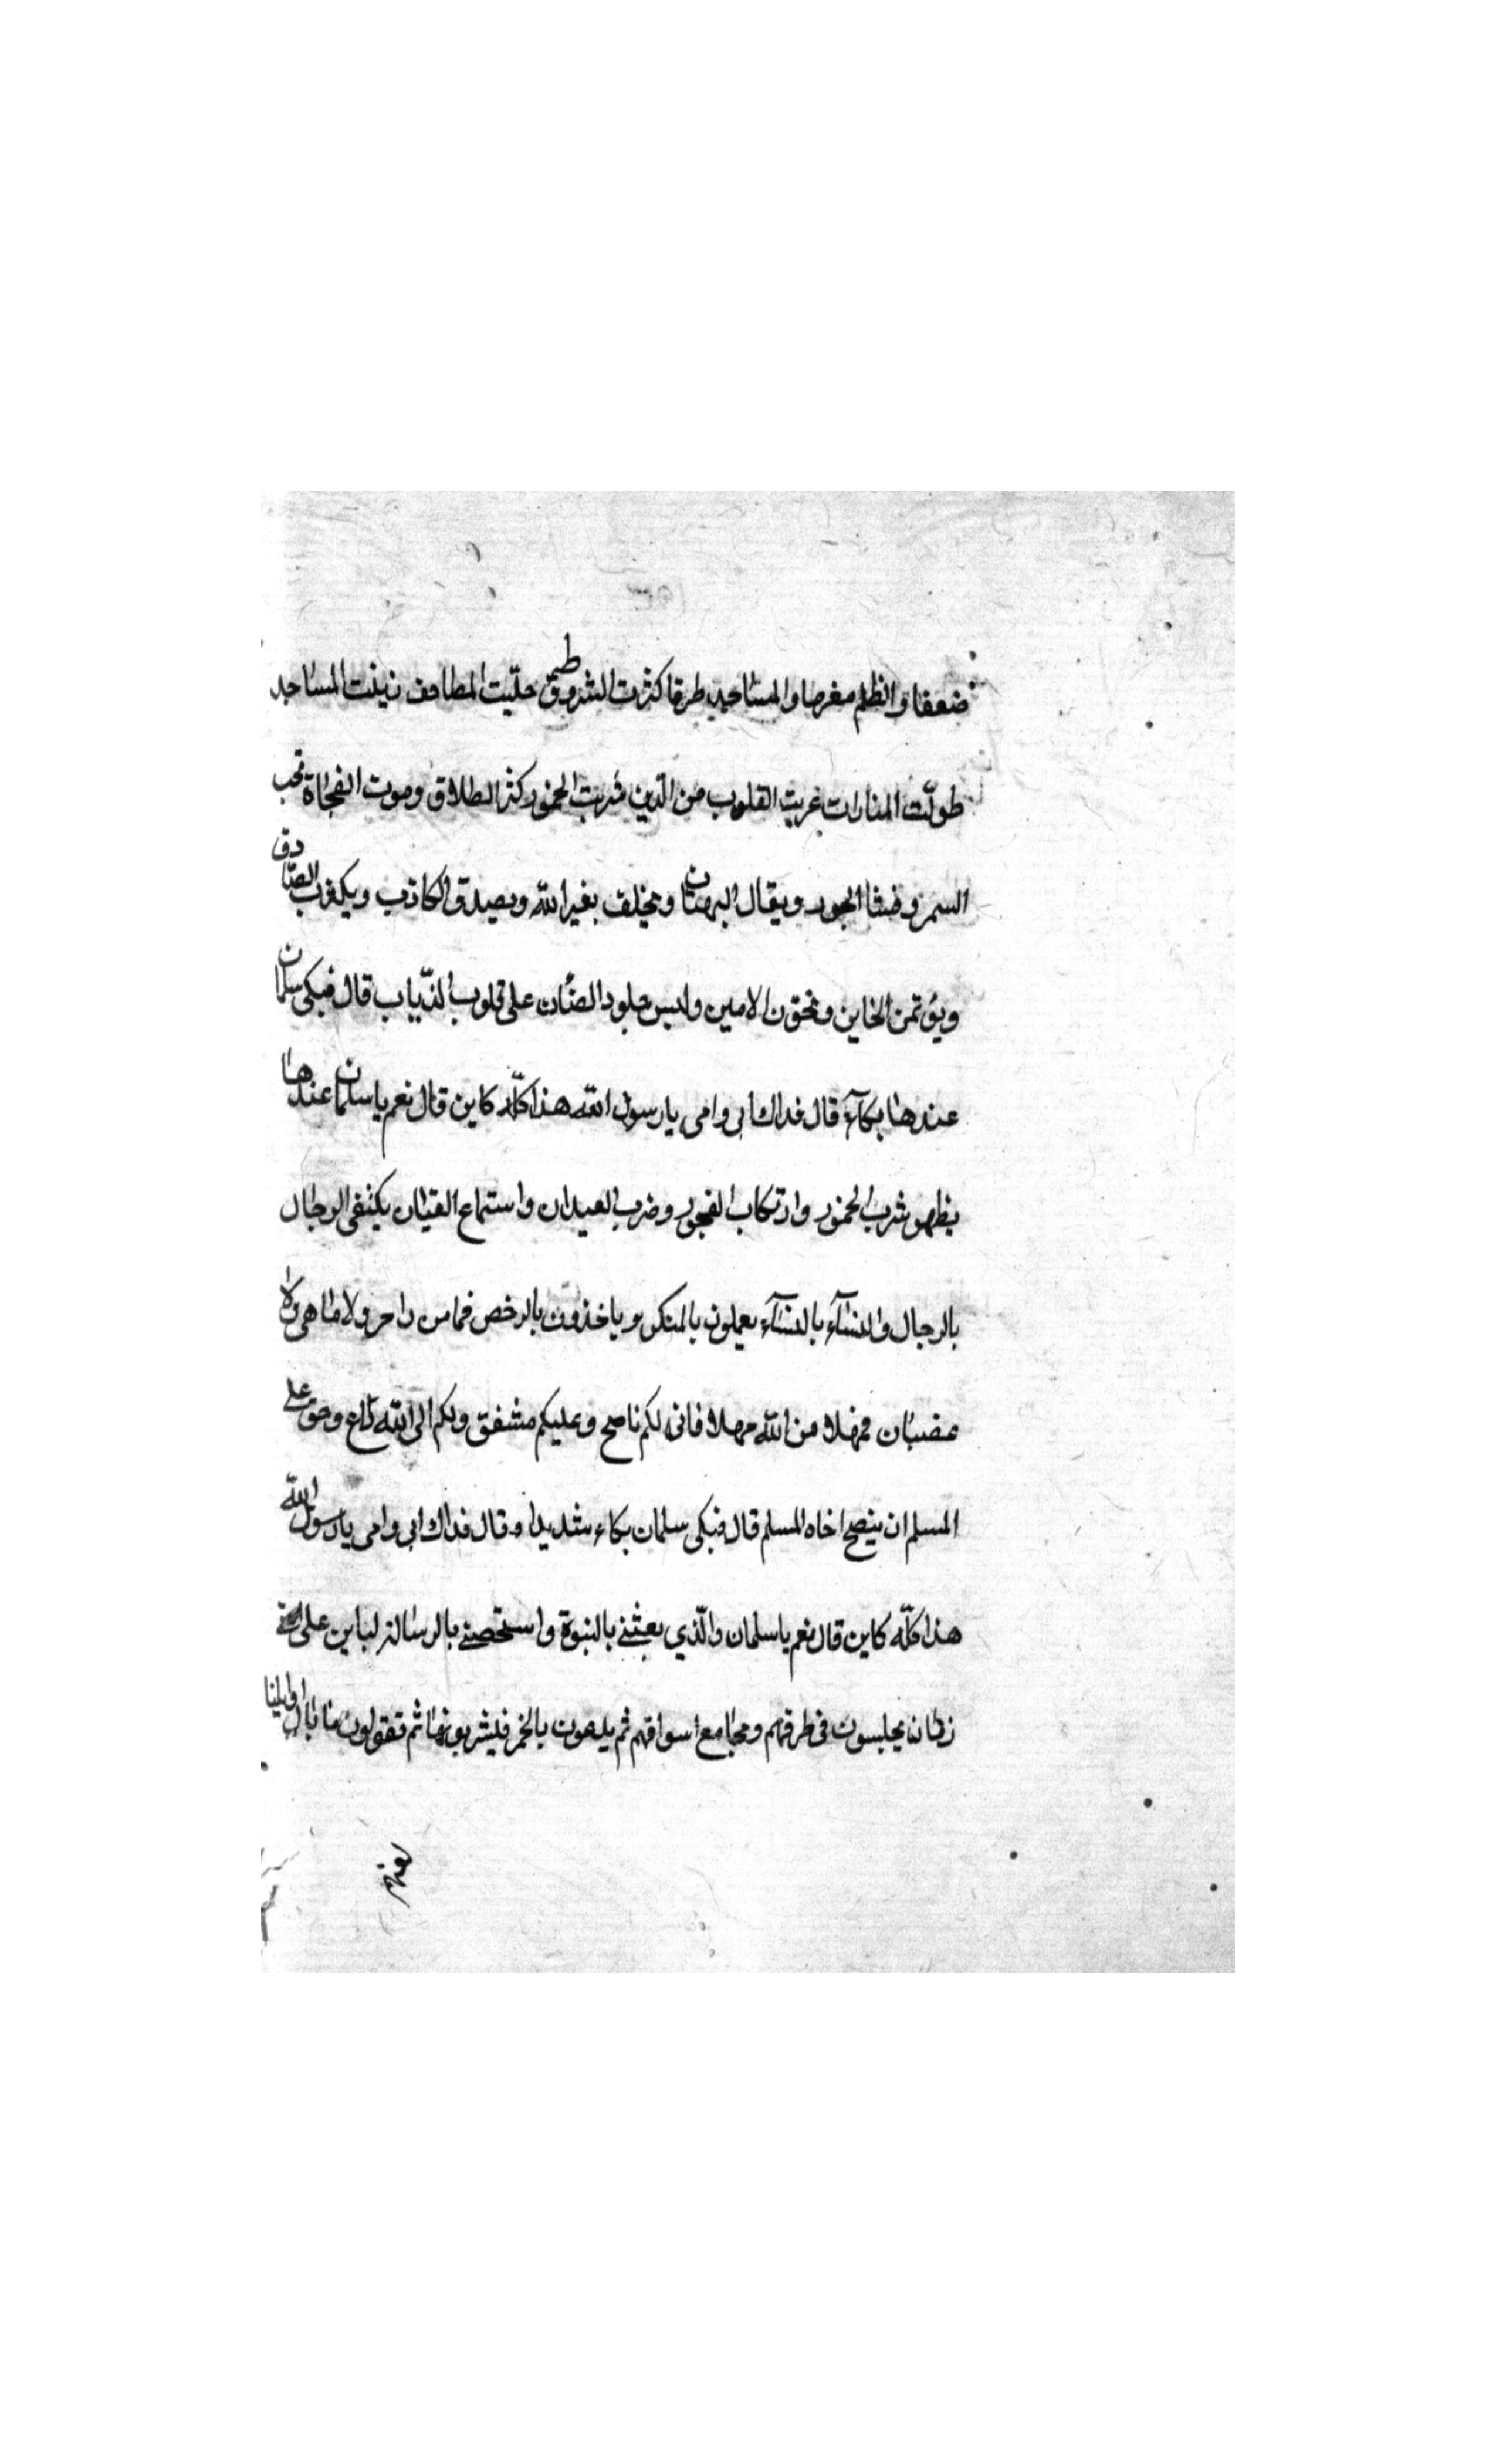 ضعفا والظلم مغرما والمساجد طرقا كثرت الشروط حلّيت المصاحف زينت المساجد
طولّت المنارات خربت القلوب من الّدين شربت الخمور كثر الطلاق وموت الفجاة
السمر وفشا الجور ويقال البهتان ويحلف بغير الله ويصدق الكاذب ويكذب الصادق
ويؤتمن الخاين ويخون الامين ولبس جلود الضّان على قلوب الذّياب قال فبكى سلمان
عندها بكآء قال فداك ابى وامى يا رسول الله هذا كلّه كاين قال نعم يا سلمان عندها
يظهر شرب الخمور وارتكاب الفجور وضرب العيدان واستماع القيان يكتفى الرجال
بالرجال والنسآء بالنسآء يعملون بالمنكر وياخذون بالرخص فما من زاجر ولا ناهى ولا
غضبان فمهلا من الله مهلا فانى لكم ناصح وعليكم مشفق ولكم الى الله داع وحق على
المسلم ان ينصح اخاه المسلم قال فبكى سلمان بكاء شديدا وقال فداك ابى وامى يا رسول الله
هذا كلّه كاين قال نعم يا سلمان والّذي بعثنى بالنبوة واستخصنى بالرسالة لياتين على امتى
زمان يجلسون فى طرقهم ومجامع اسواقهم ثم يدعون بالخمر فيشربونها ثم تقولون ما بال